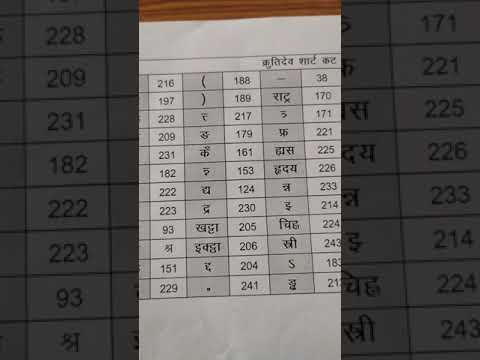 क्रुतिदेव शार्ट कट
216 ( 188 – 38
197 ) 189 राट्र 170
228 217 171
209 ङ 179 फ्र 221
231 कँ 161 ह्रास 225
182 153 हृदय 226
222 द्य 124 न्न 233
223 द्र 230 इ 214
93 खट्टा 205 चिह्न 224
श्र इक्ट्ठा 206 स्त्री 243
151 द्द 204 ऽ 183
229 . 241 ड्ढ
228
209
231
182
222
223
93
श्र
171
221
225
226
233
214
224
243